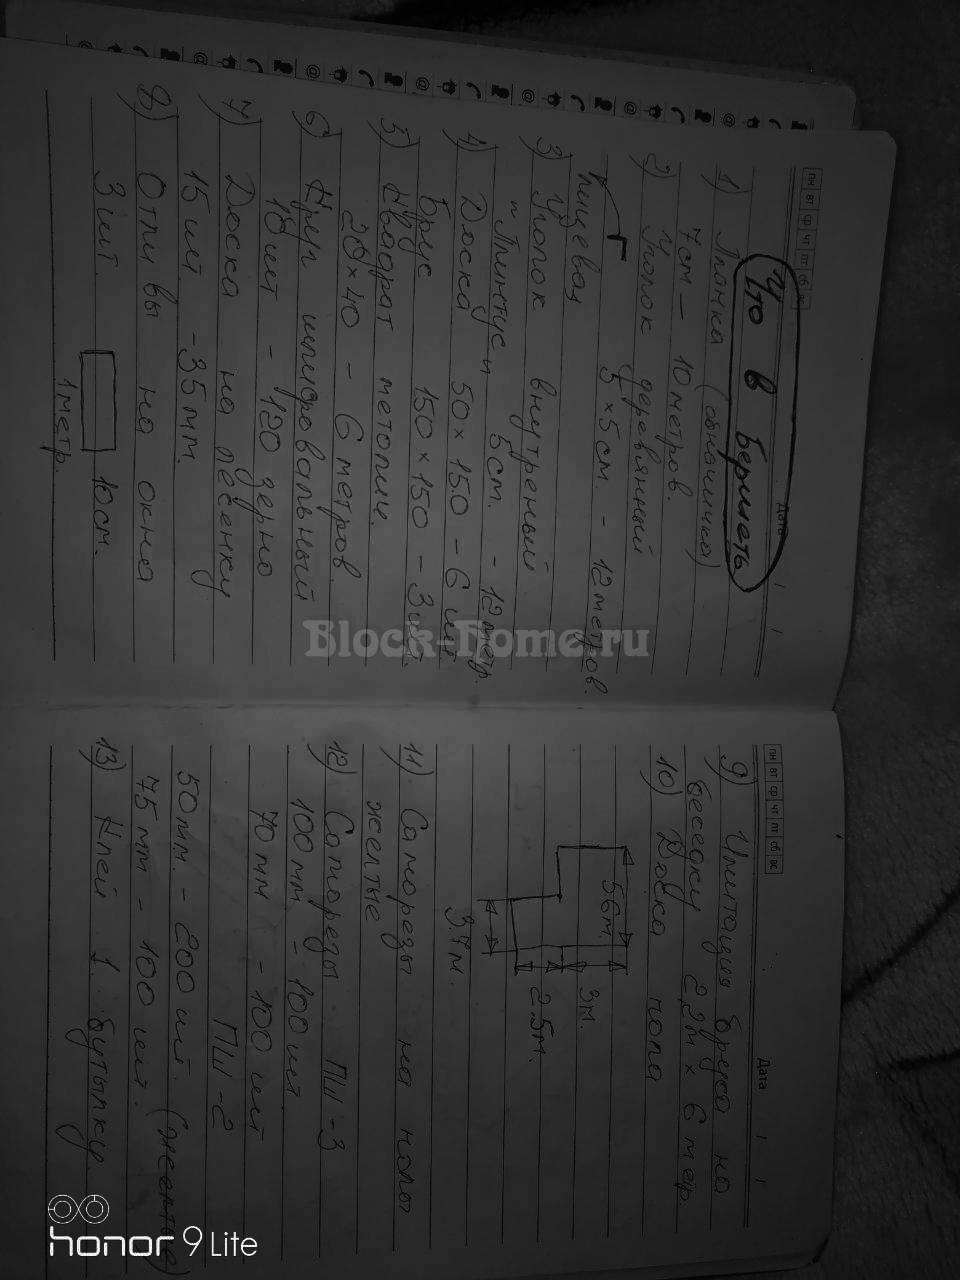 Дата / /
пн вт ср чт пт сб вс
Что в Берместь
1) Планка (обналичка)
7см – 10 метров.
2) Уголок деревянный
5 × 5см. - 12 метров.
3) Уголок внутреный
" Плинтус" 5см. - 12 метр.
4) Доска 50 × 150 – 6 шт
Брус 150 × 150 – 3 шт
5) Квадрат метопил.
20 × 40 - 6 метров.
6) Круг шлифовальный
18 шт - 120 зерно
7) Доска на лесенку
15 шт - 35 мм.
8) Отливы на окна
3 шт. 10см.
1 метр.
Дата / /
пн вт ср чт пт сб вс
9) Имитация бруса на
беседку 2,2м × 6 метр.
10) Доска пола
5.6м.
3м.
2.5м.
3.7м.
11). Саморезы на полы
желтые
12) Саморезы. ПШ-3
100мм - 100шт.
70мм - 100шт
ПШ-2
50мм. - 200шт. (желтые)
75мм - 100шт.
13) Клей 1. бутылку.
Block-Home.ru
honor 9 Lite